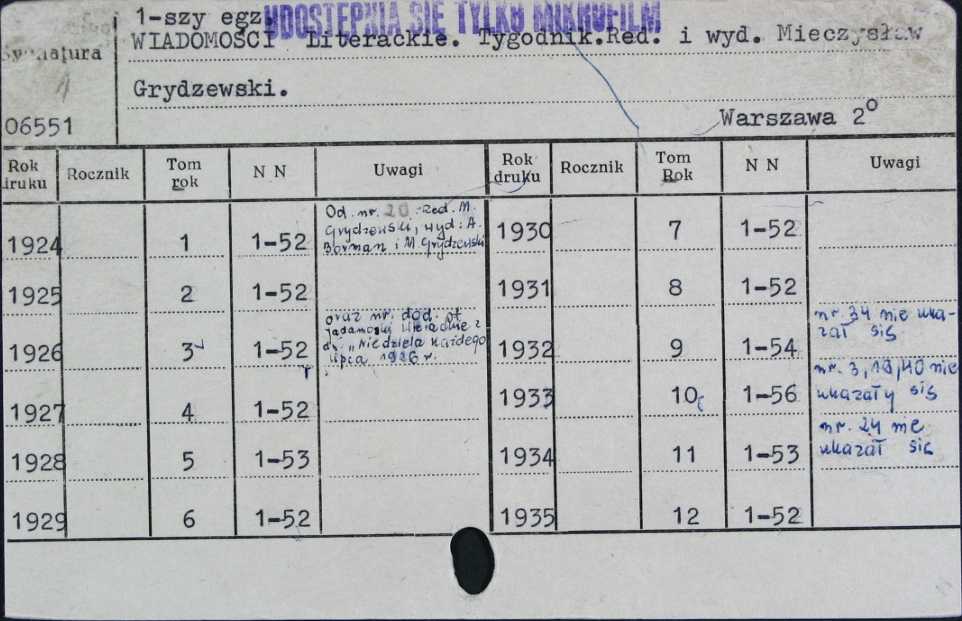 1-szy egz. UDOSTĘPNIA SIĘ TYLKO MIKROFILM
WIADOMOŚCI Literackie. Tygodnik.Red. i wyd. Mieczysław
Sygnatura
Grydzewski.
06551
Warszawa 2°
Rok druku Rocznik Tom rok N N Uwagi Rok druku Rocznik Tom Rok N N Uwagi
1924 1 1-52 Od nr. 20 Red. M. Grydzewski, wyd: A. Borman i M Grydzewski 1930 7 1-52
1925 2 1-52 1931 8 1-52
1926 3 1-52 oraz nr. dod. pt. Literackie z dn. "Niedziela każdego lipca 1926 r. 1932 9 1-54 nr. 34 nie ukazał się
1927 4 1-52 1933 10 1-56 nr. 3, 19, 40 nie ukazały się
1928 5 1-53 1934 11 1-53 nr. 24 nie ukazał się
1929 6 1-52 1935 12 1-52